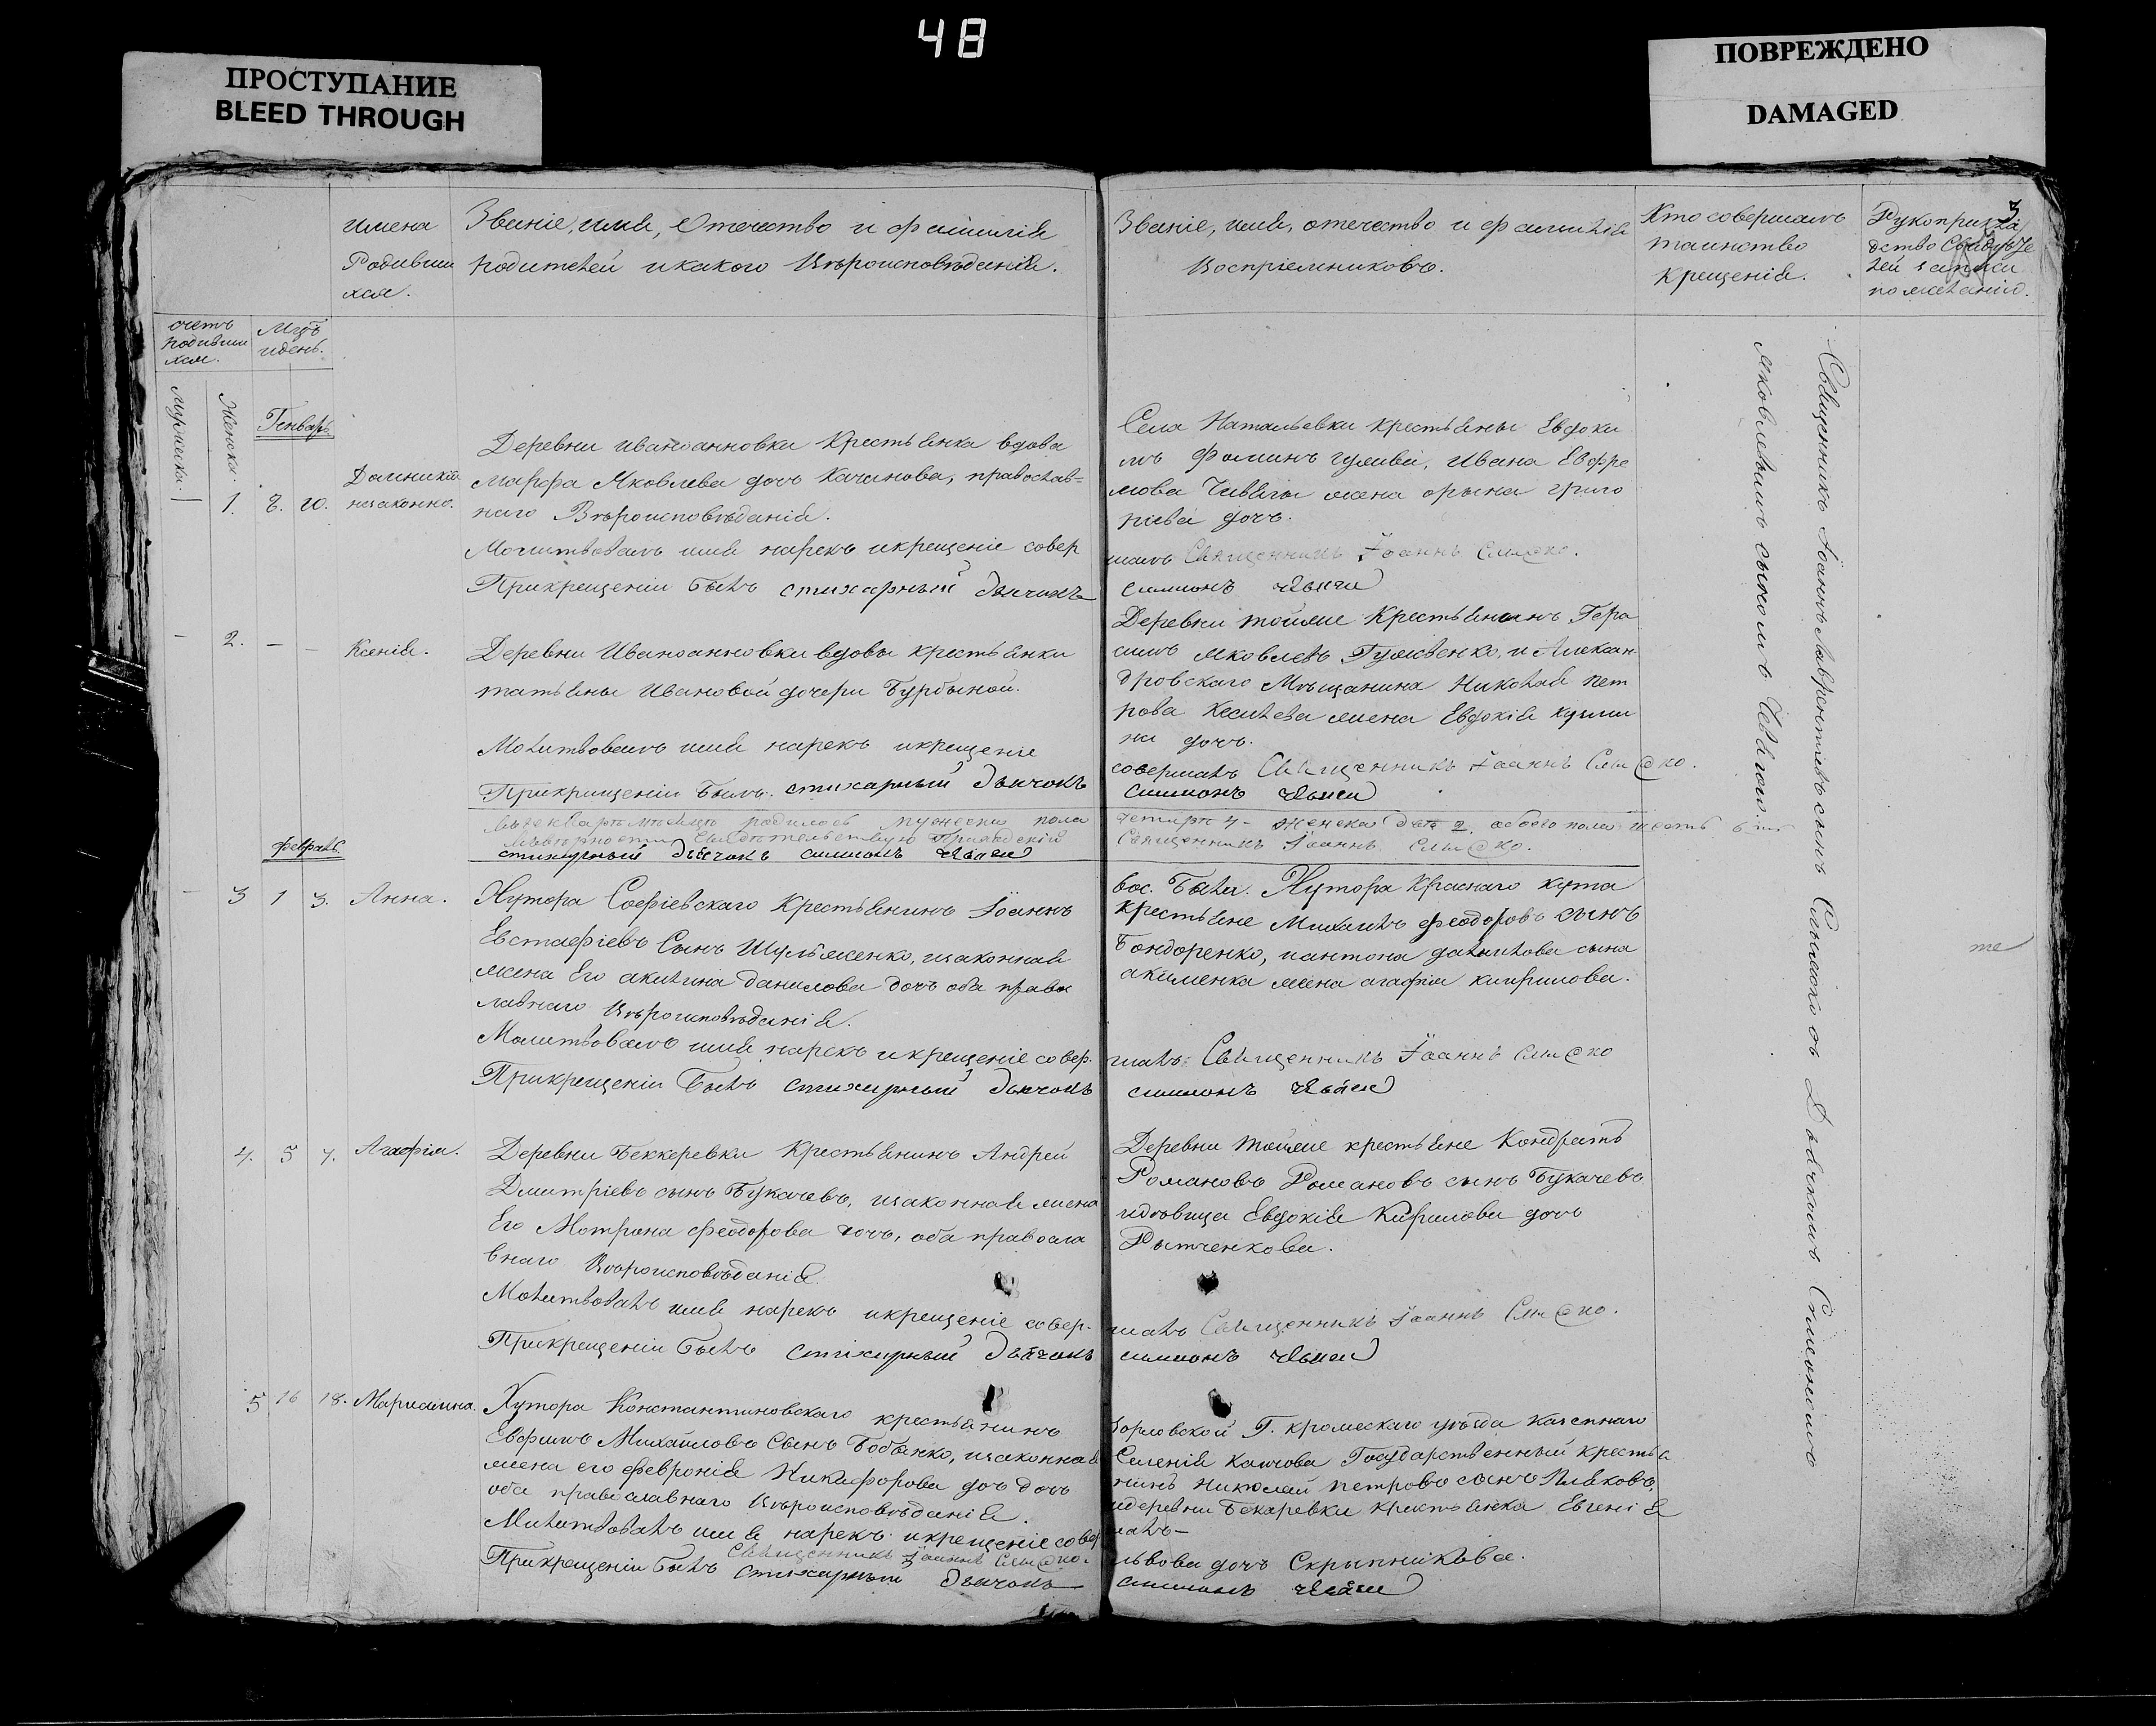 48
ПРОСТУПАНИЕ
BLEED THROUGH
ПОВРЕЖДЕНО
DAMAGED
3
имена
Родивши
хся.
Званіе, имя, Отечество и фамилія
родителей икакого Вѣроисповѣданія.
Званіе, имя, отечество и фамилія
Воспріемниковъ.
Кто совершалъ
таинство
крещенія.
Рукоприкла
дство
записи
по желанію.
счетъ
родивши
хся.
Мцъ
идень.
Мужеска.
Женска.
Генварь
1. 8. 10.
Домникія
незаконно.
Деревни Ивано анновки Крестьянка вдова
Марфа Яковлева дочь Качанова, православ=
наго Вѣроисповѣданія.
Молитвовалъ имя нарекъ икрещеніе совер
Прикрещеніи Былъ стихарный дьячокъ
Села Натальевки крестьяны Евдоки
мъ Фоминъ гуливы, Ивана Евфре
мова жена орына григо
ріева дочь.
шалъ Священникъ Іоаннъ
симионъ
2. — —
Ксенія.
Деревни Ивано анновки вдовы крестьянки
татьяны Ивановой дочери Бурбыной.
Молитвовалъ имя нарекъ икрещеніе
Прикрищеніи Былъ. стихарный дьячокъ
Деревни тойже Крестьянинъ Гера
симъ яковлевъ Гужвенко, и Алексан
дровскаго Мѣщанина Николая пет
рова жена Евдокія кузми
на дочь.
совершалъ Священникъ Іоаннъ
симионъ
родилось мужеска пола
четыре 4 - женска 2. обоего пола шесть
стихарный дьячокъ симионъ
Священникъ Іоаннъ
февраль.
3 1 3. Анна.
Хутора Софіевскаго Крестьянинъ Іоаннъ
Евстафіевъ Сынъ Шульженко, изаконная
жена Его акилина данилова дочь оба право
лавнаго Вѣроисповѣданія.
Молитвовалъ имя нарекъ икрещеніе совер.
Прикрещеніи Былъ стихарный дьячокъ
вос. Были. Хутора Краснаго кута
крестьяне Михаилъ феодоровъ сынъ
Бондоренко, иантона данилова сына
акименка жена агафія киирилова.
шалъ: Священникъ Іоаннъ
симионъ
4. 5 7. Агафія.
Деревни Беккеревки Крестьянинъ Андрей
Дмитріевъ сынъ Букачевъ, изаконная жена
Его Мотрона феодорова дочь, оба правосла
внаго Вѣроисповѣданія.
Молитвовалъ имя нарекъ икрещеніе совер-
Прикрещеніи Былъ стихарный дьячокъ
Деревни тойже крестьяне Кондратъ
Романовъ Романовъ сынъ Букачевъ
идѣвица Евдокія Кирилова дочь
Рытченкова.
шалъ Священникъ Іоаннъ
симионъ
5 16 18. Мариамна.
Хутора Константиновскаго крестьянинъ
Евфимъ Михайловъ Сынъ Бобынко, изаконная
жена его февронія Никифорова дочь дочь
оба православнаго Вѣроисповѣданія.
Молитвовалъ имя нарекъ икрещеніе совер
Священникъ Іоаннъ
Прикрещеніи Былъ стихарный дьячокъ
орловской Г. кромскаго уѣзда казеннаго
Селенія Государственный крестья
нинъ Николай петровъ сынъ
идеревни Бекаревки крестьянка Евгенія
шалъ —
львова дочь Скрыпникова.
симионъ
Священникъ Іоаннъ Лаврентіевъ сынъ съ Дьячкомъ Симіономъ
яковлевымъ сыномъ